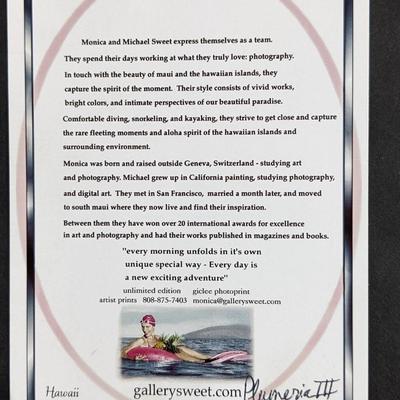 Monica and Michael Sweet express themselves as a team.
They spend their days working at what they truly love: photography.
In touch with the beauty of maui and the hawaiian islands, they
capture the spirit of the moment. Their style consists of vivid works,
bright colors, and intimate perspectives of our beautiful paradise.
Comfortable diving, snorkeling, and kayaking, they strive to get close and capture
the rare fleeting moments and aloha spirit of the hawaiian islands and
surrounding environment.
Monica was born and raised outside Geneva, Switzerland - studying art
and photography. Michael grew up in California painting, studying photography,
and digital art. They met in San Francisco, married a month later, and moved
to south maui where they now live and find their inspiration.
Between them they have won over 20 international awards for excellence
in art and photography and had their works published in magazines and books.
"every morning unfolds in it's own
unique special way - Every day is
a new exciting adventure"
unlimited edition giclee photoprint
artist prints 808-875-7403 monica@gallerysweet.com
Hawaii gallerysweet.com Plumeria III